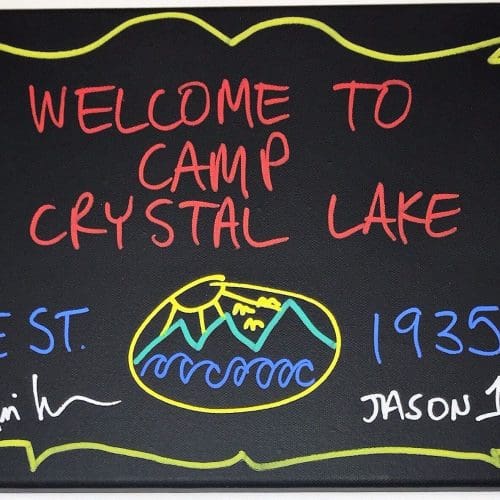 WELCOME TO
CAMP
CRYSTAL LAKE
EST. 1935
JASON 1